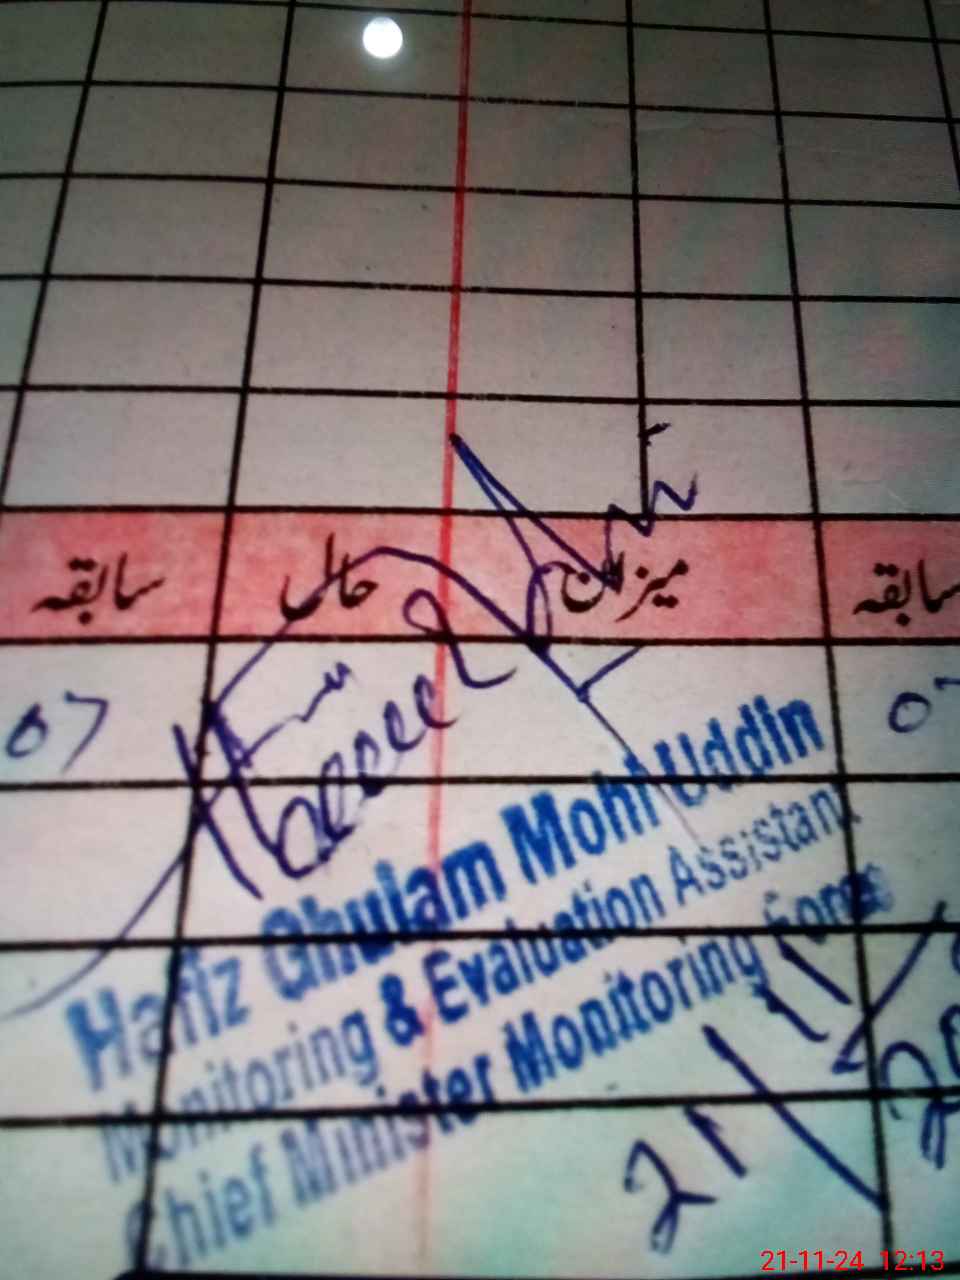 سابقہ حال میزان سابقہ
07
Hafiz Ghulam Mohi Uddin
Monitoring & Evaluation Assistant
Chief Minister Monitoring Force
21/11/
21-11-24 12:13